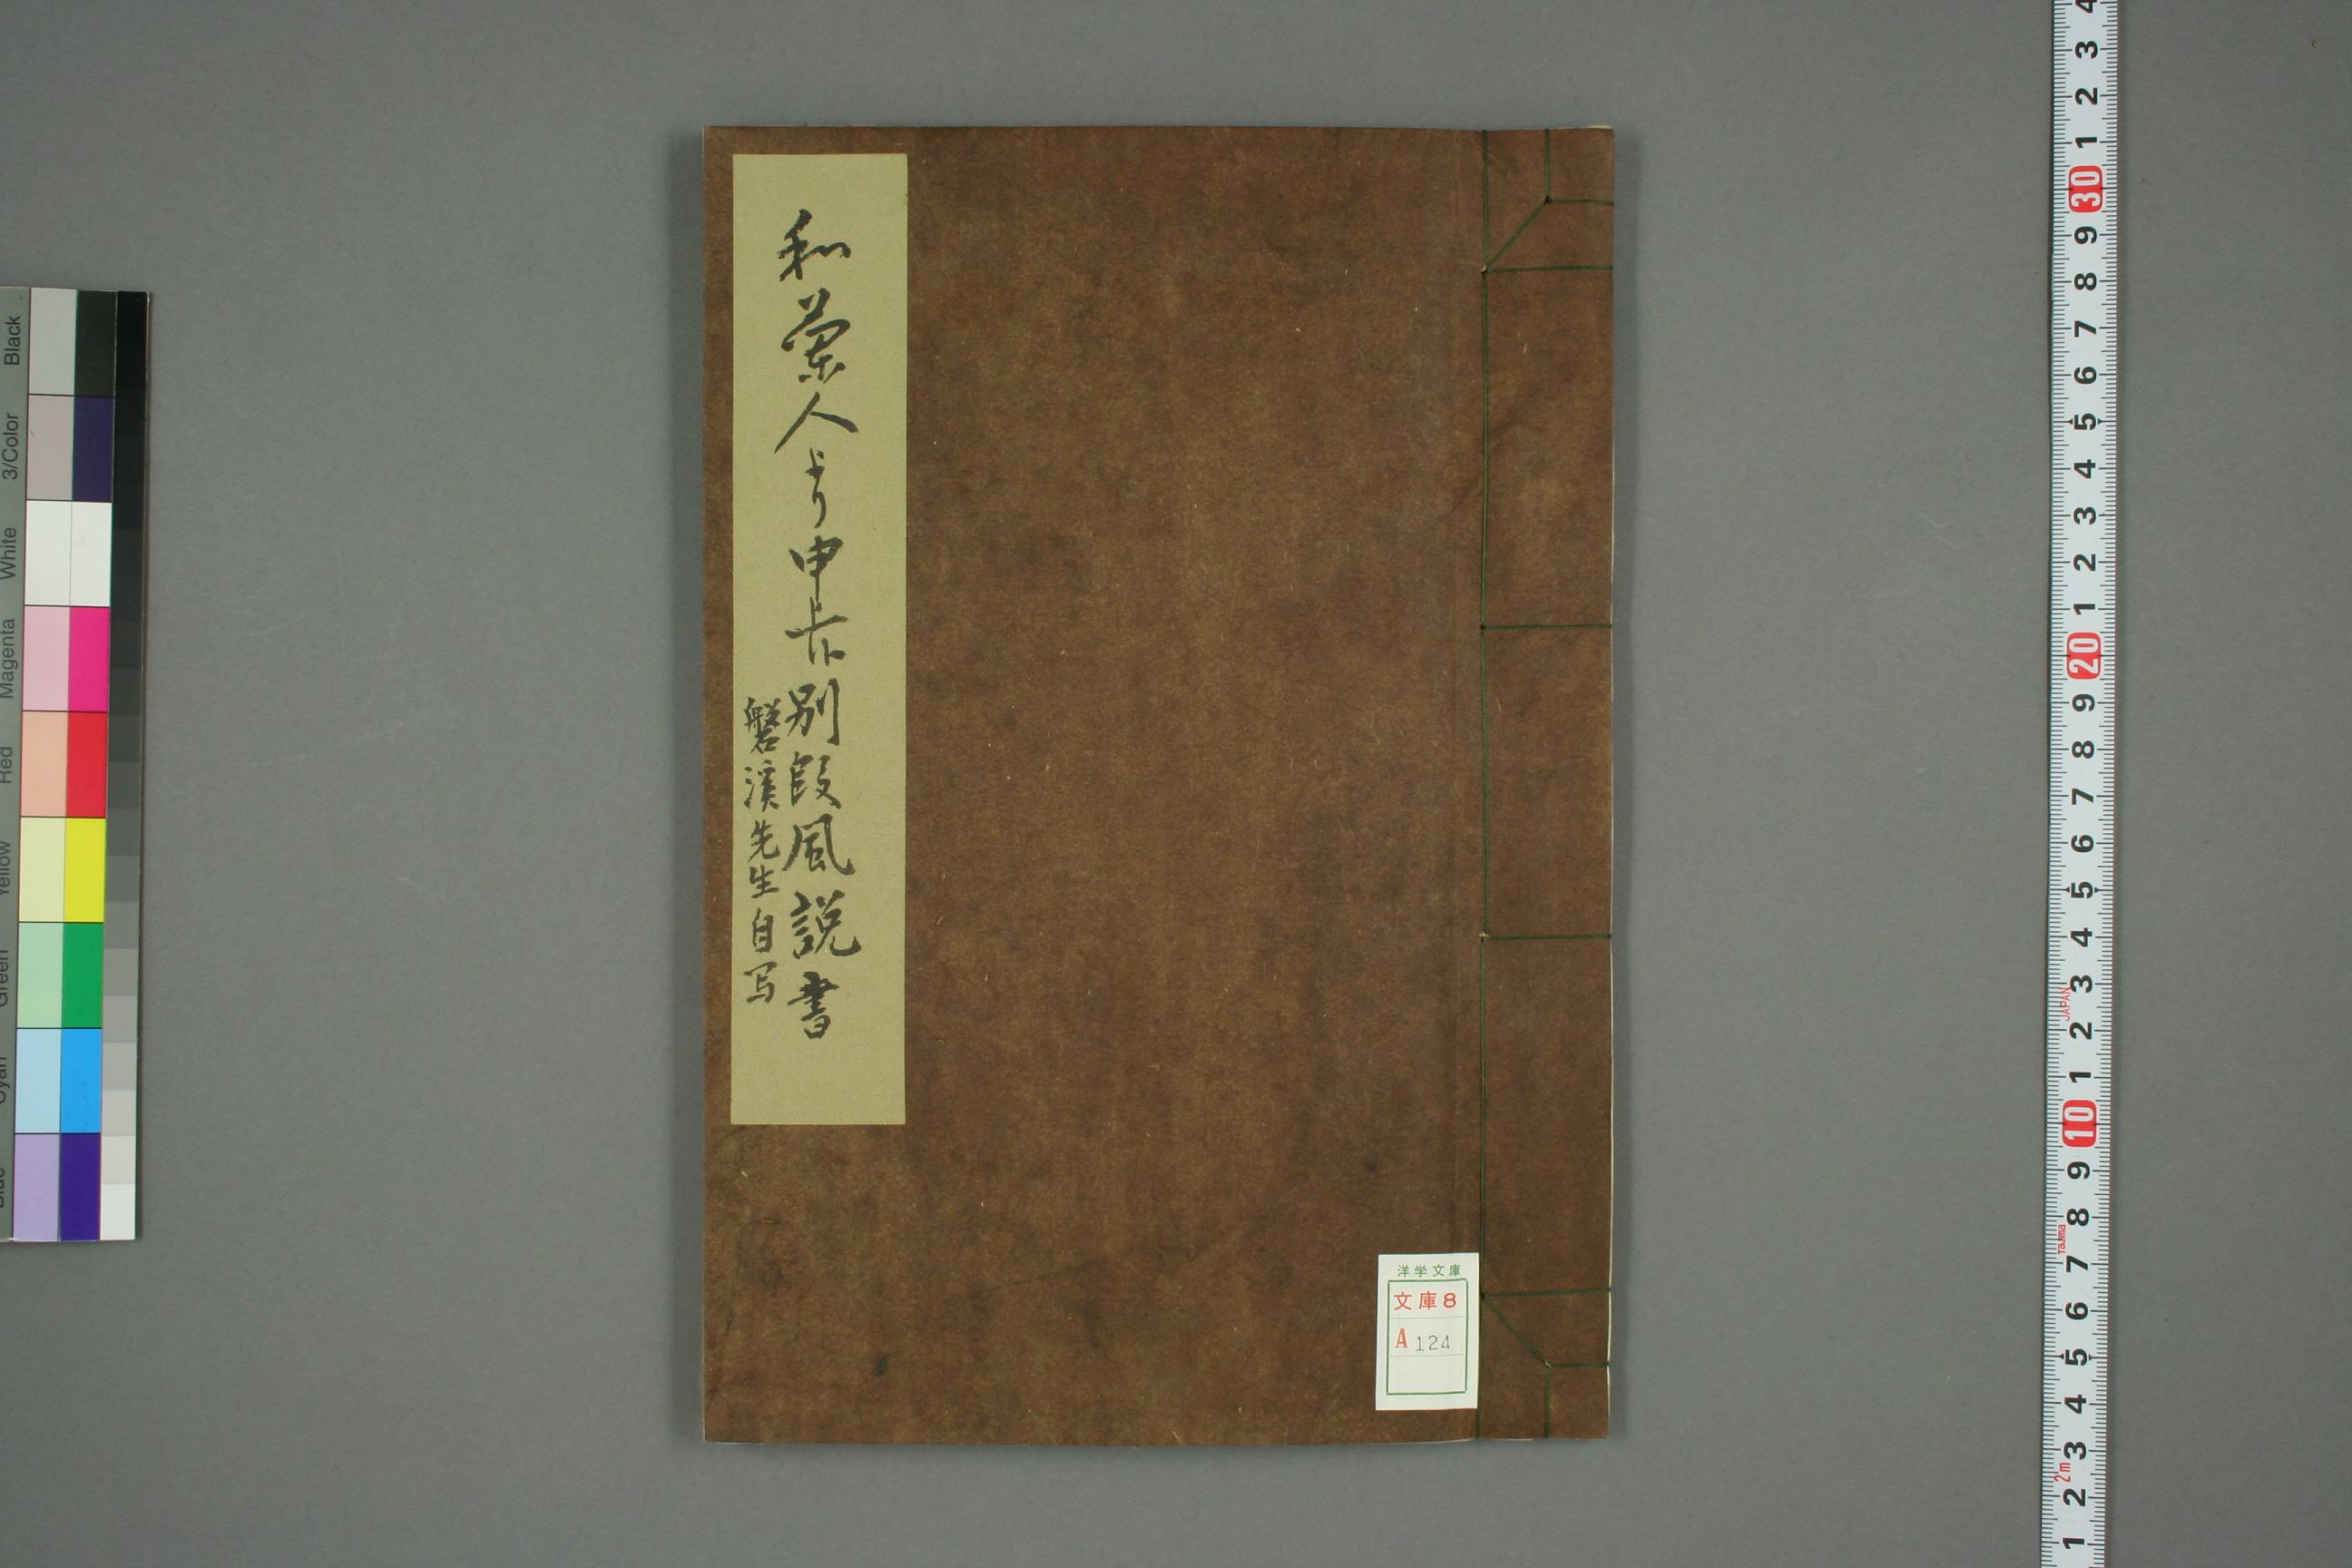 和蘭人より申上候別段風説書
磐溪先生自写
洋学文庫
文庫8
A 124
Black
3/Color
White
Magenta
Red
Yellow
Green
Cyan
Blue
4
3
2
1
30
9
8
7
6
5
4
3
2
1
20
9
8
7
6
5
4
3
JAPAN
2
1
10
9
8
Tajima
7
6
5
4
3
2m
2
1